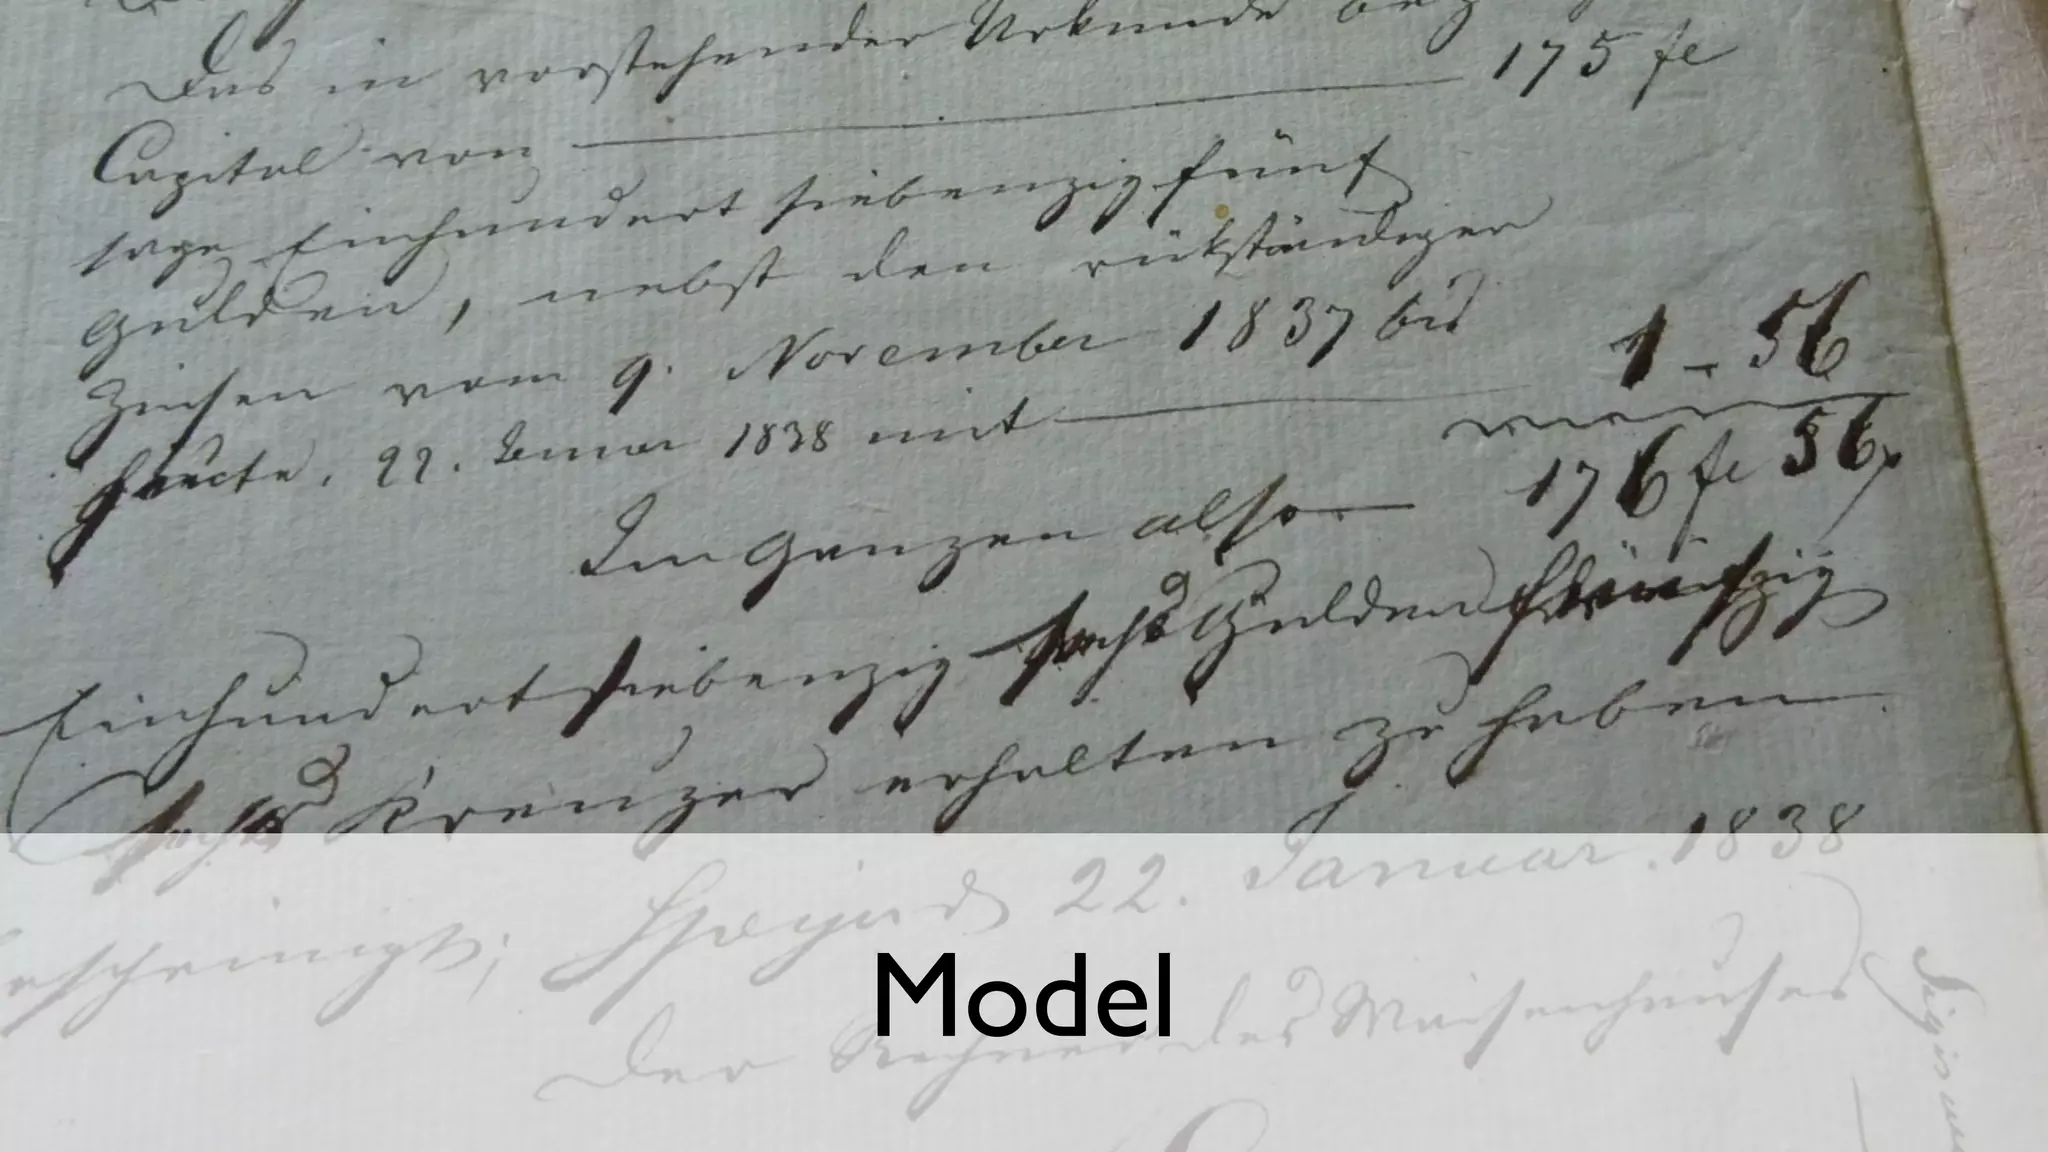 Das in vorstehender Urkunde
Capital von — 175 fl
sage Einhundert siebenzig fünf
Gulden, nebst den rükständigen
Zinsen vom 9. November 1837 bis
heute, 22. Januar 1838 mit — 1 - 56
Im Ganzen also — 176 fl 56 x
Einhundert siebenzig sechs Gulden fünfzig
sechs Kreuzer erhalten zu haben
bescheinigt; 22. Januar. 1838
Der Rechner des Waisenhauses
Model